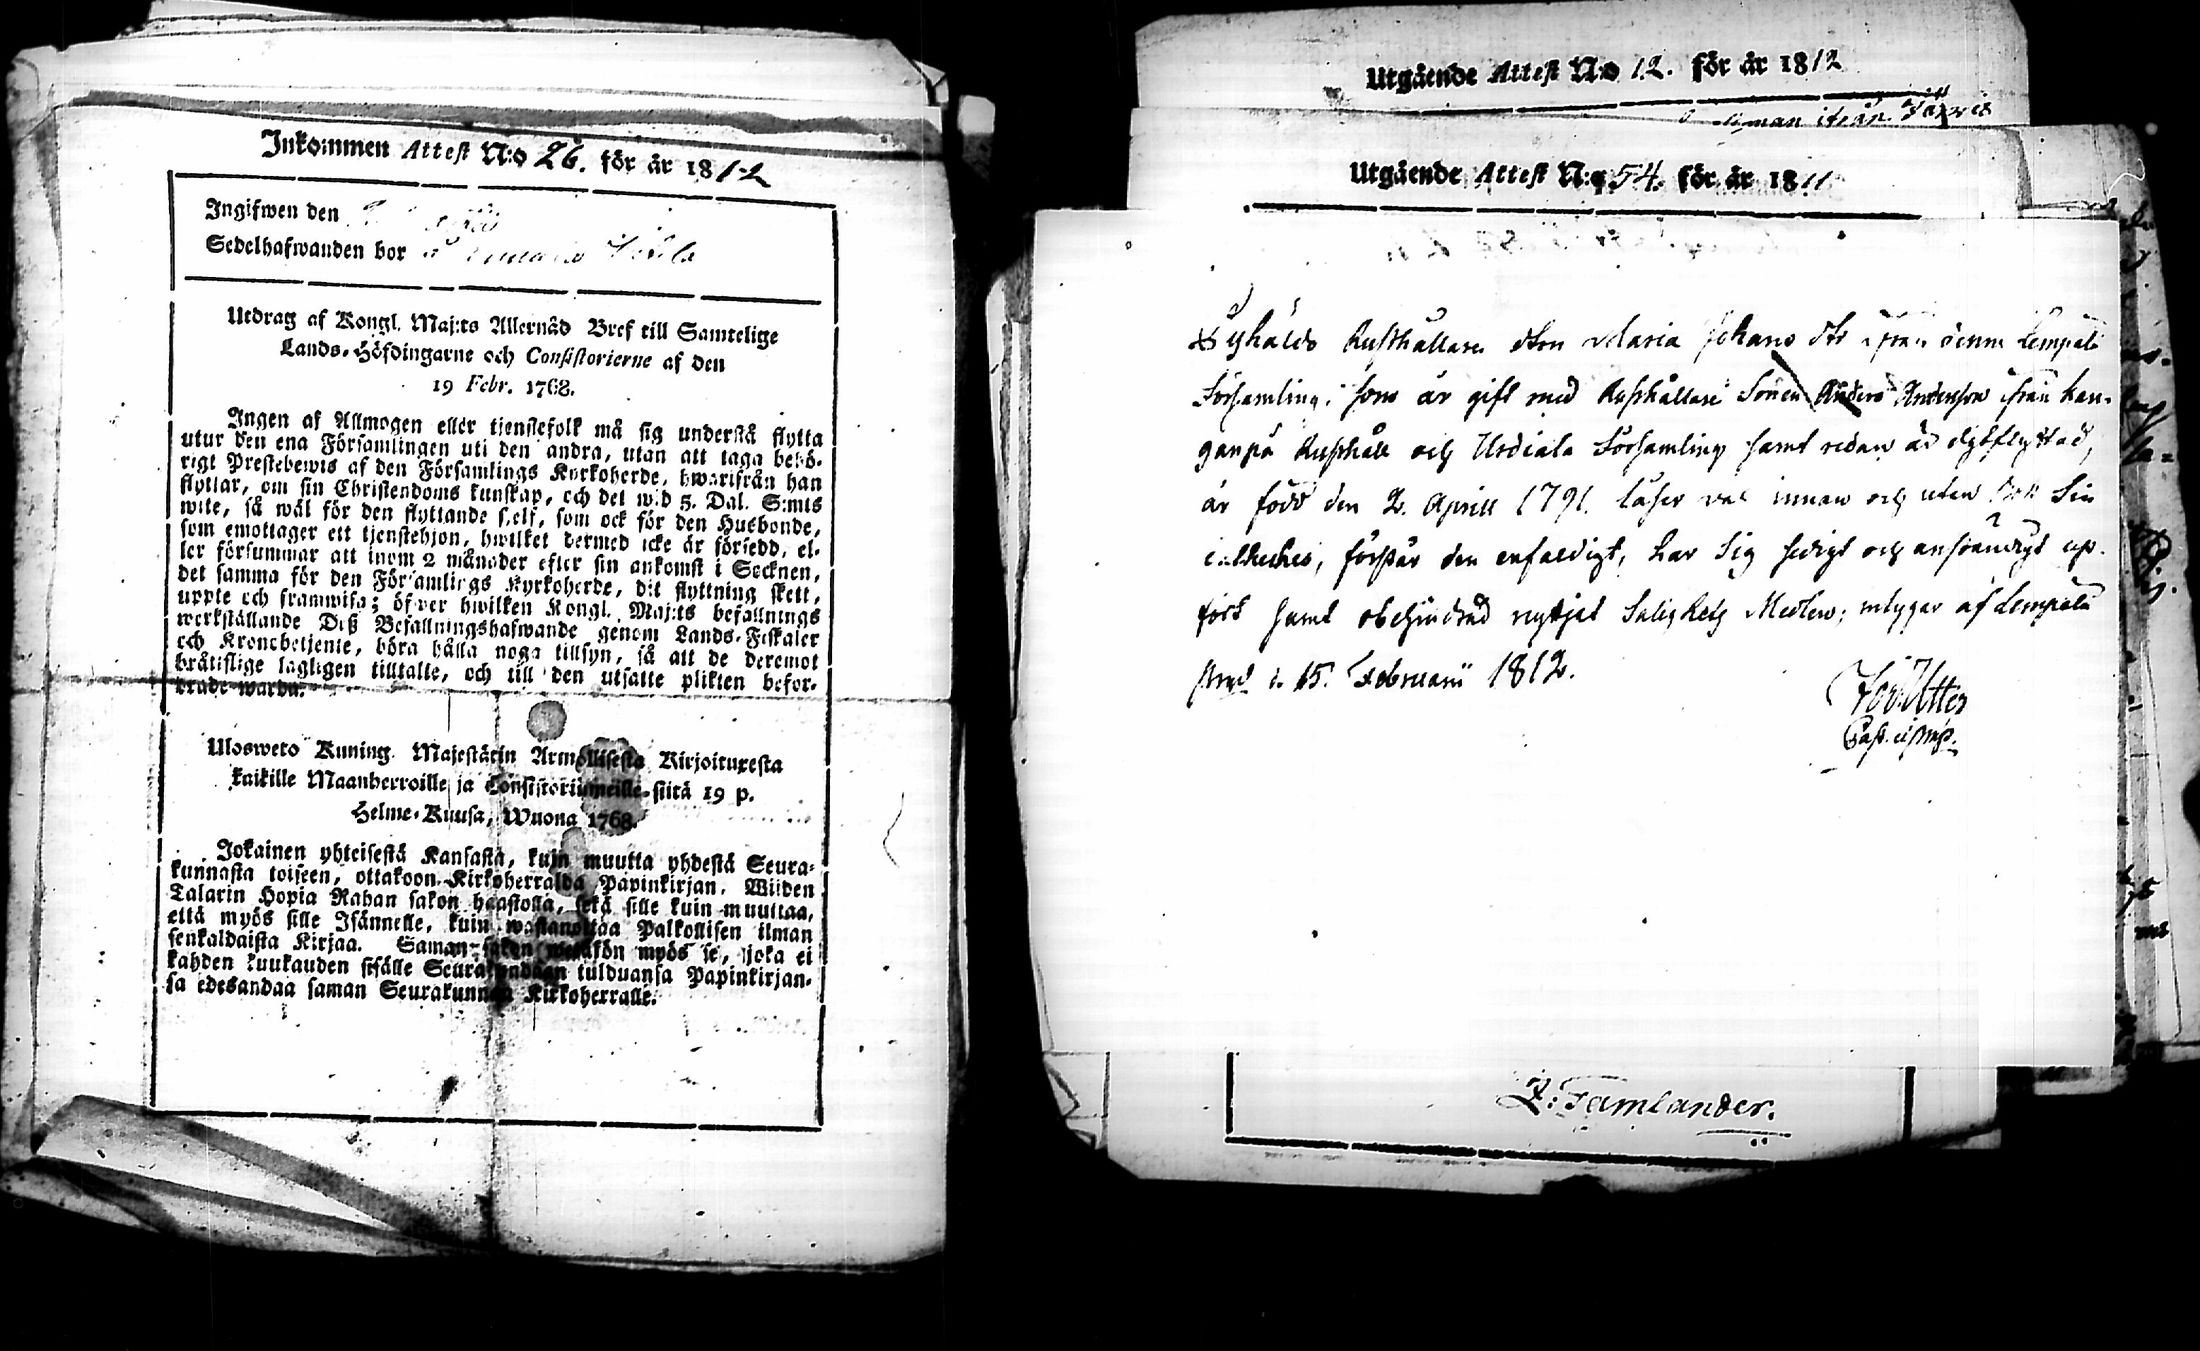 Inkommen Attest N:o 26. för år 1812
Ingifwen den
Sedelhafwanden bor
Utdrag af Kongl. Maj:ts Allernåd Bref till Samtelige
Lands-Höfdingarne och Consistorierne af den
19 Febr. 1768.
Ingen af Allmogen eller tjenstefolk må sig understå flytta
utur den ena Församlingen uti den andra, utan att taga behö-
rigt Prestebewis af den Församlings Kyrkoherde, hwarifrån han
flyttar, om sin Christendoms kunskap, och det wid 5. Dal. S:mts
wite, så wäl för den flyttande sielf, som ock för den Husbonde,
som emottager ett tjenstehjon, hwilket dermed icke är försedd, el-
ler försummar att inom 2 månader efter sin ankomst i Socknen,
det samma för den Församlings Kyrkoherde, dit flyttning skett,
uppte och framwisa; öfwer hwilken Kongl. Maj:ts befallnings
werkställande Diß Befallningshafwande genom Lands-Fiskaler
och Kronobetjente, böra hålla noga tillsyn, så att de deremot
bråtislige lagligen tilltalte, och till den utsatte plikten befor-
drade warda.
Ulosweto Kuning. Majestätin Armollisesta Kirjoituxesta
kaikille Maanherroille ja Consistoriumeille siitä 19 p.
Helme-Kuusa, Wuona 1768.
Jokainen yhteisestä Kansasta, kuin muutta yhdestä Seura-
kunnasta toiseen, ottakoon Kirkoherralda Papinkirjan, Wiiden
Talarin Hopia Rahan sakon haastolla, sekä sille kuin muuttaa,
että myös sille Isännelle, kuin wastanottaa Palkollisen ilman
senkaldaista Kirjaa. Saman sakon wetäkön myös se, joka ei
kahden kuukauden sisälle Seurakundaan tulduansa Papinkirjan-
sa edesandaa saman Seurakunnan Kirkoherralle.
Utgående Attest N:o 12. för år 1812
ifrån
Utgående Attest N:o 54. för år 1811
Rusthållare dtren Maria Johans dtr ifrån denna Lempälä
Församling, som är gift med Rusthållare Sonen Anders Andersson ifrån Kan-
ganpä Rusthåll och Urdiala Församling samt redan är ditflyttad,
är född den 2. Aprill 1791. läser wäl innan och utan bok Sin
Catheches, förstår den enfaldigt, har Sig sedigt och anständigt up-
fört samt obehindrad nyttjat Salighets Medlen; intygar af Lempälä
Prgd d. 15. Februarii 1812.
Utter
Past.
Tamlander.